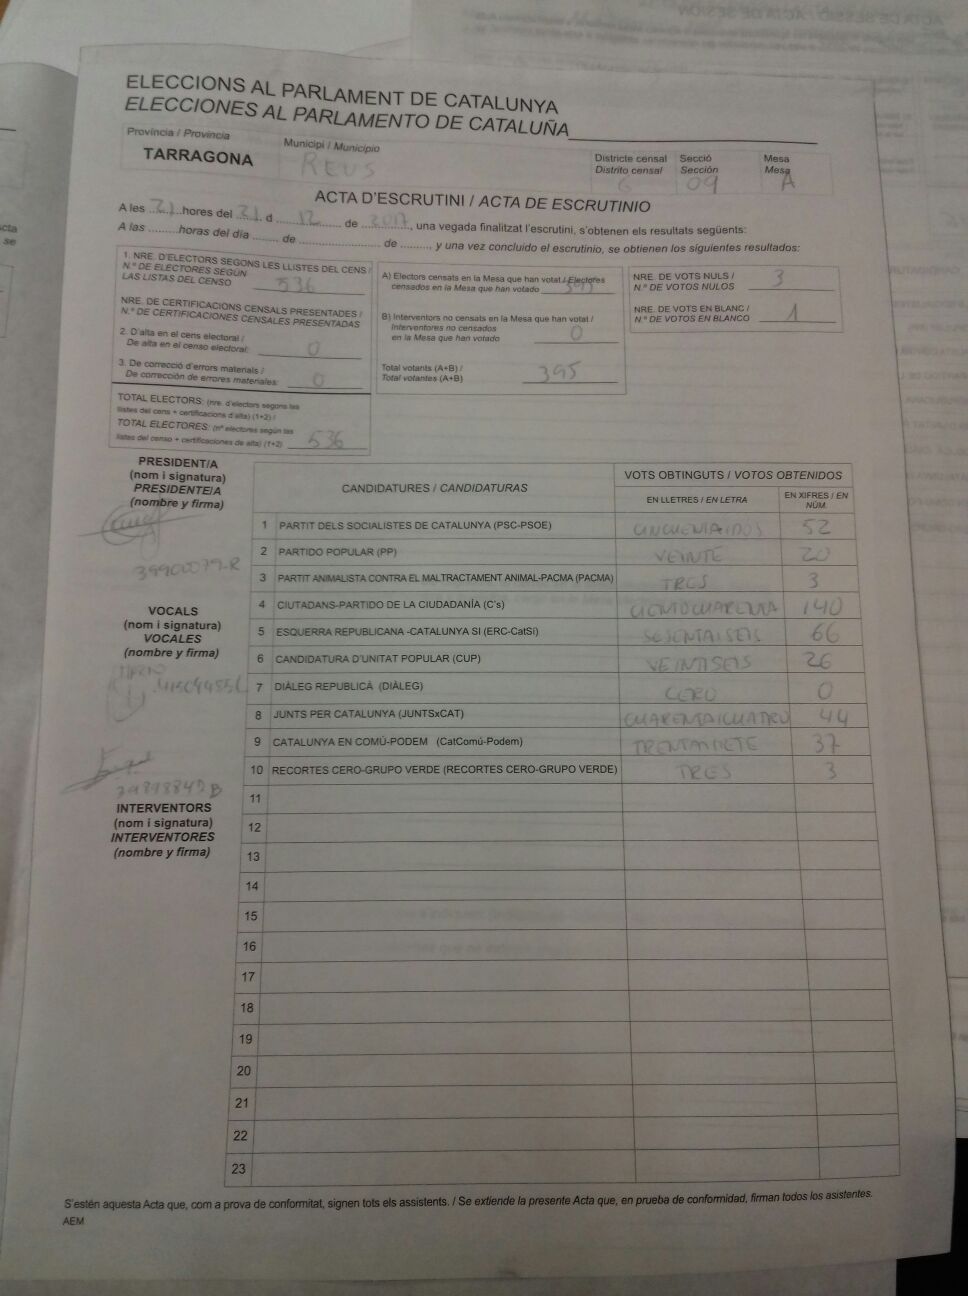 ELECCIONS AL PARLAMENT DE CATALUNYA
ELECCIONES AL PARLAMENTO DE CATALUÑA
Província / Provincia
TARRAGONA
Municipi / Municipio
REUS
Districte censal
Distrito censal
6
Secció
Sección
09
Mesa
Mesa
A
ACTA D'ESCRUTINI / ACTA DE ESCRUTINIO
A les 21 hores del 21 d 12 de 2017, una vegada finalitzat l'escrutini, s'obtenen els resultats següents:
A las ......... horas del día ....... de ...................... de ........., y una vez concluido el escrutinio, se obtienen los siguientes resultados:
1. NRE. D'ELECTORS SEGONS LES LLISTES DEL CENS /
N.º DE ELECTORES SEGÚN
LAS LISTAS DEL CENSO 536
NRE. DE CERTIFICACIONS CENSALS PRESENTADES /
N.º DE CERTIFICACIONES CENSALES PRESENTADAS
2. D'alta en el cens electoral /
De alta en el censo electoral: 0
3. De correcció d'errors materials /
De corrección de errores materiales: 0
TOTAL ELECTORS: (nre. d'electors segons les
llistes del cens + certificacions d'alta) (1+2) /
TOTAL ELECTORES: (nº electores según las
listas del censo + certificaciones de alta) (1+2) 536
A) Electors censats en la Mesa que han votat / Electores
censados en la Mesa que han votado
B) Interventors no censats en la Mesa que han votat /
Interventores no censados
en la Mesa que han votado 0
Total votants (A+B) /
Total votantes (A+B) 395
NRE. DE VOTS NULS /
N.º DE VOTOS NULOS 3
NRE. DE VOTS EN BLANC /
N.º DE VOTOS EN BLANCO 1
PRESIDENT/A
(nom i signatura)
PRESIDENTE/A
(nombre y firma)
39900079-R
VOCALS
(nom i signatura)
VOCALES
(nombre y firma)
INTERVENTORS
(nom i signatura)
INTERVENTORES
(nombre y firma)
CANDIDATURES / CANDIDATURAS
VOTS OBTINGUTS / VOTOS OBTENIDOS
EN LLETRES / EN LETRA
EN XIFRES / EN NÚM.
1 PARTIT DELS SOCIALISTES DE CATALUNYA (PSC-PSOE) CINCUENTAIDOS 52
2 PARTIDO POPULAR (PP) VEINTE 20
3 PARTIT ANIMALISTA CONTRA EL MALTRACTAMENT ANIMAL-PACMA (PACMA) TRES 3
4 CIUTADANS-PARTIDO DE LA CIUDADANÍA (C's) CIENTOCUARENTA 140
5 ESQUERRA REPUBLICANA -CATALUNYA SI (ERC-CatSí) SESENTAISEIS 66
6 CANDIDATURA D'UNITAT POPULAR (CUP) VEINTISEIS 26
7 DIÀLEG REPUBLICÀ (DIÀLEG) CERO 0
8 JUNTS PER CATALUNYA (JUNTSxCAT) CUARENTAICUATRO 44
9 CATALUNYA EN COMÚ-PODEM (CatComú-Podem) 37
10 RECORTES CERO-GRUPO VERDE (RECORTES CERO-GRUPO VERDE) TRES 3
11
12
13
14
15
16
17
18
19
20
21
22
23
S'estén aquesta Acta que, com a prova de conformitat, signen tots els assistents. / Se extiende la presente Acta que, en prueba de conformidad, firman todos los asistentes.
AEM